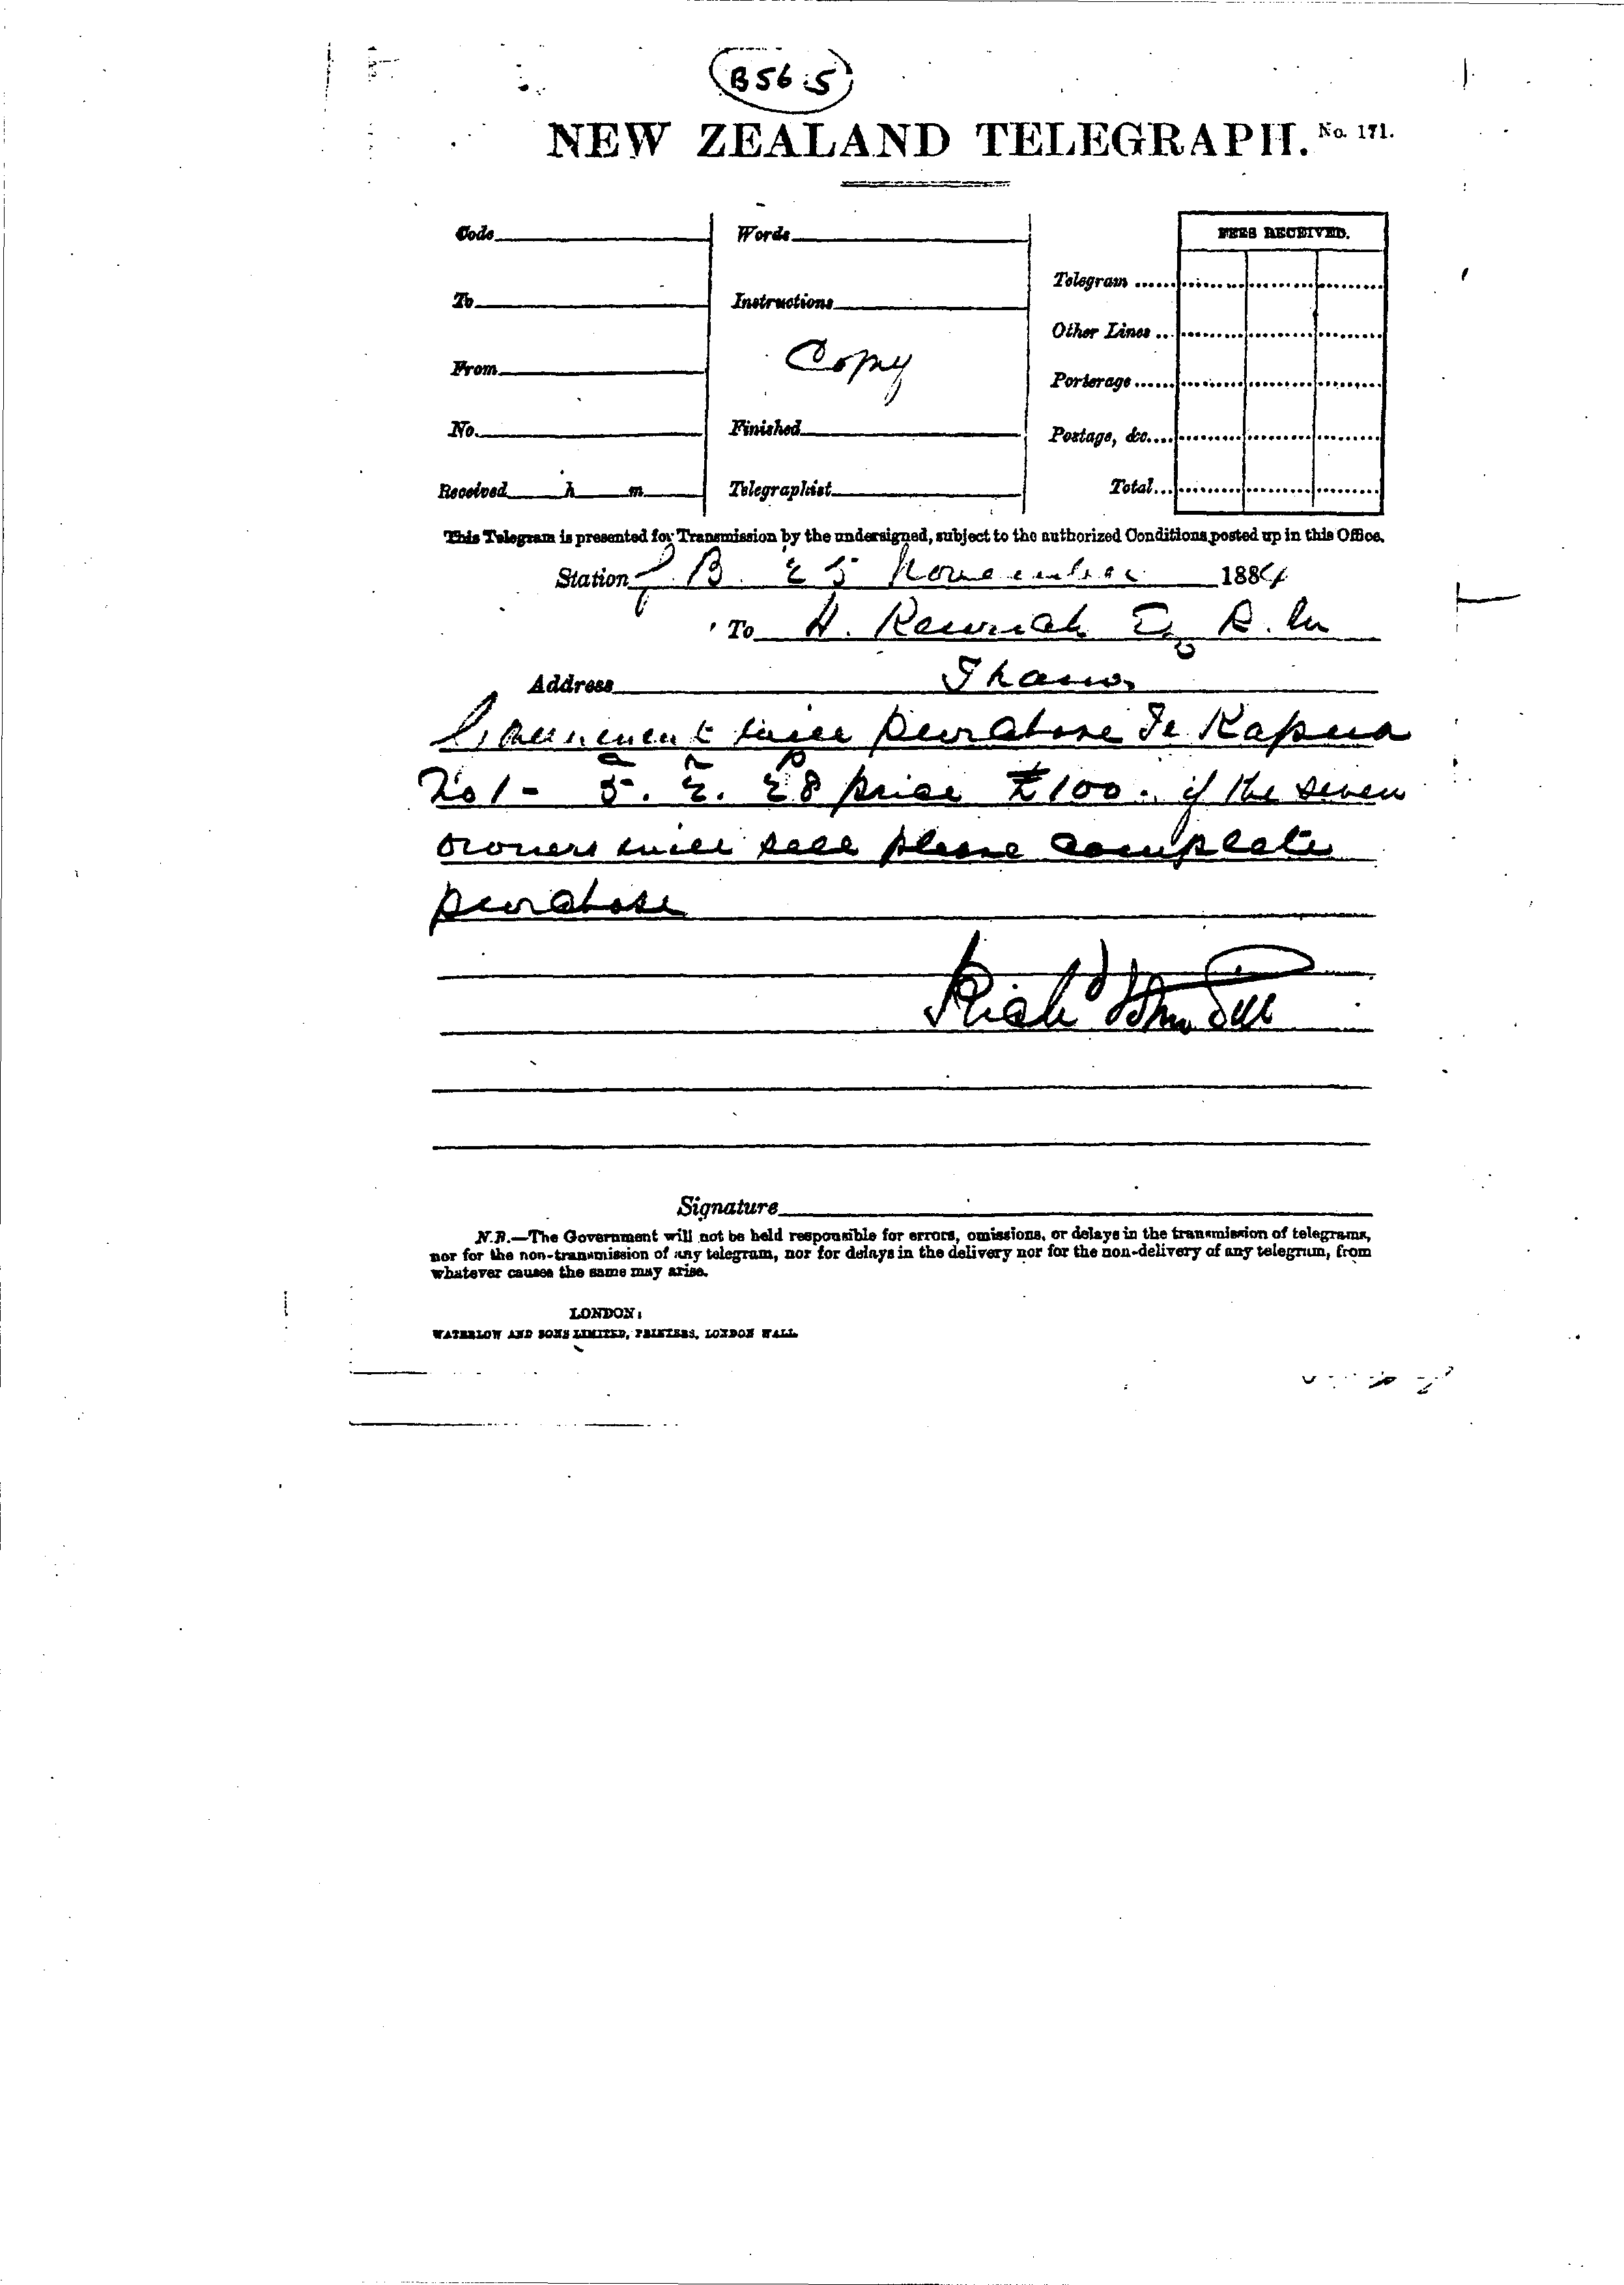 B 56:5
NEW ZEALAND TELEGRAPH. No. 171.
Code
Words
FEES RECEIVED.
Telegram
To
Instructions
Other Lines
Copy
From
Porterage
No.
Finished
Postage, &c.
Received h m
Telegraphist
Total
This Telegram is presented for Transmission by the undersigned, subject to the authorized Conditions posted up in this Office.
Station B. 25 November 1884
To H. Kenrick R. M
Address Thames
Government will purchase Te Kapua
No 1 - a r p
5. 2. 28 price £100. if the seven
owners will sell please complete
purchase
Signature
N.B.—The Government will not be held responsible for errors, omissions, or delays in the transmission of telegrams,
nor for the non-transmission of any telegram, nor for delays in the delivery nor for the non-delivery of any telegram, from
whatever causes the same may arise.
LONDON:
WATERLOW AND SONS LIMITED, PRINTERS, LONDON WALL